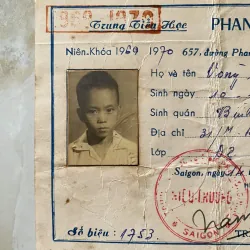 1969-1970
Trung Tiểu Học PHAN
Niên-Khóa 1969 1970 657, đường Phan
Họ và tên Vòng
Sinh ngày 10 -
Sinh quán
Địa chỉ 31/M
Lớp D2
Saigon, ngày
HIỆU-TRƯỞNG
SAIGON
Số hiệu : 1753